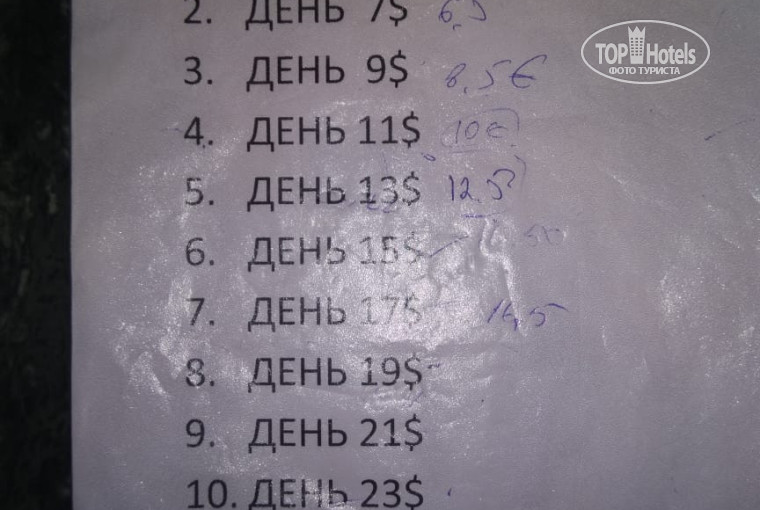 2. ДЕНЬ 7$
TOP Hotels
ФОТО ТУРИСТА
3. ДЕНЬ 9$ 8,5€
4. ДЕНЬ 11$ 10€
5. ДЕНЬ 13$ 12,5
6. ДЕНЬ 15$
7. ДЕНЬ 17$ 16,5
8. ДЕНЬ 19$
9. ДЕНЬ 21$
10. ДЕНЬ 23$